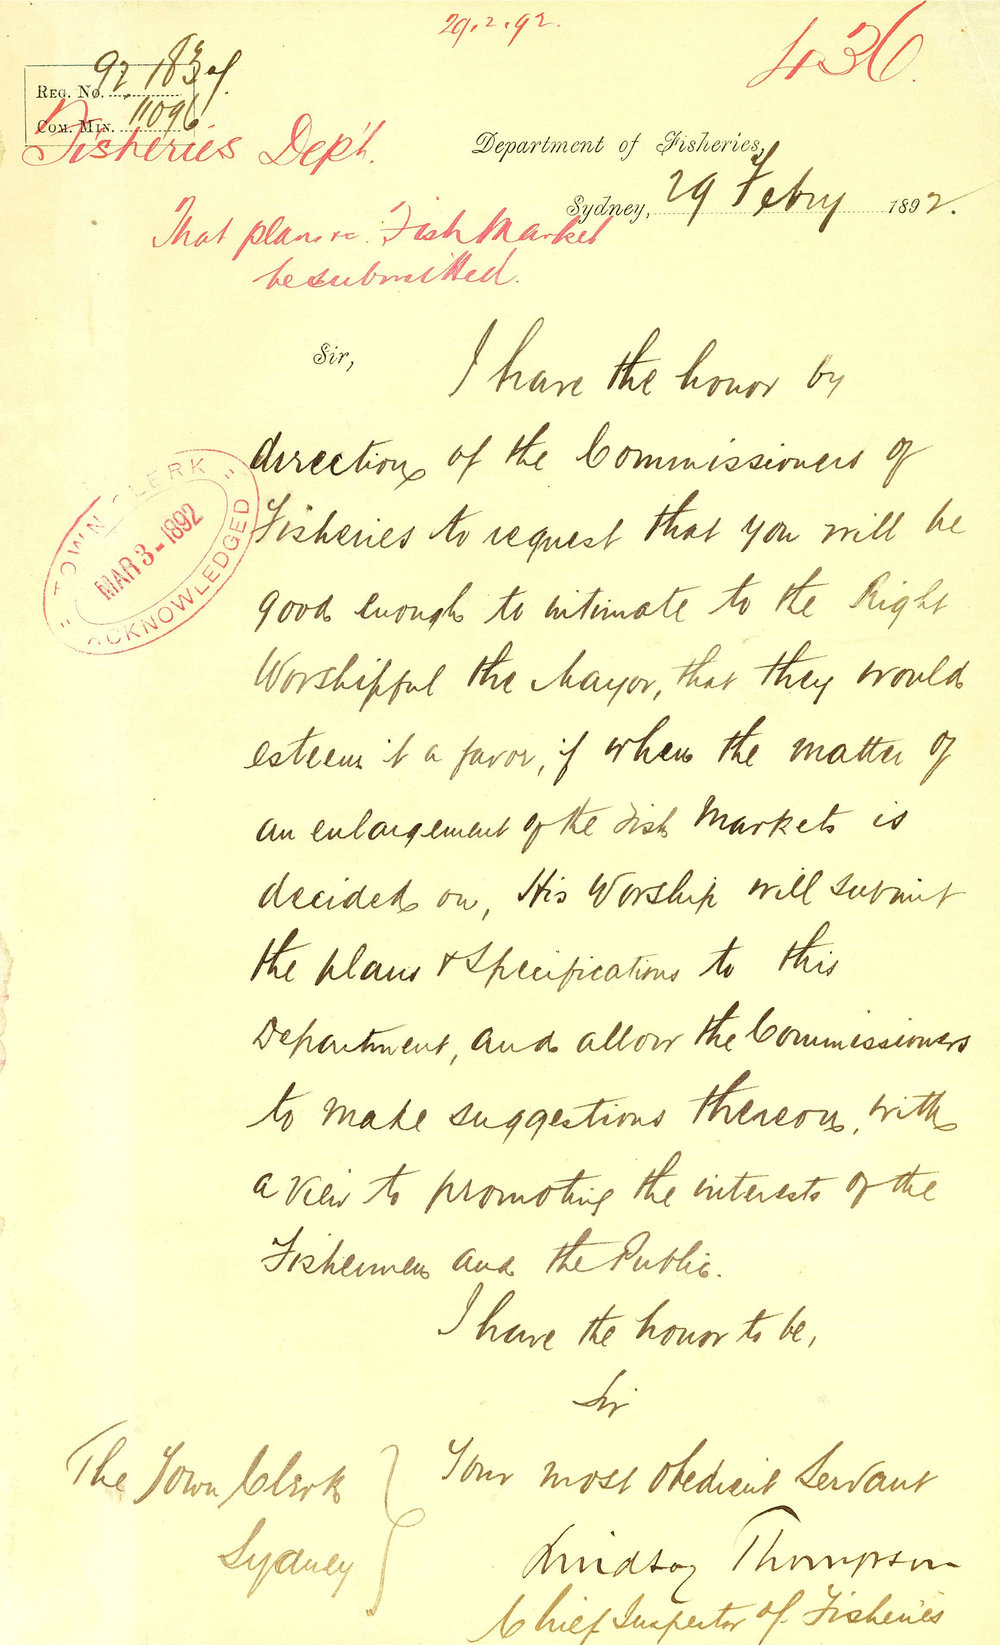 29.2.92.
436.
Reg. No. 92/
Com. Min. 11096
Fisheries Dep't.
Department of Fisheries,
Sydney, 29 Febry 1892.
That plans &c. Fish Market
be submitted.
Sir,
I have the honor by
direction of the Commissioners of
Fisheries to request that you will be
good enough to intimate to the Right
Worshipful the Mayor, that they would
esteem it a favor, if when the matter of
an enlargement of the Fish Markets is
decided on, His Worship will submit
the plans & Specifications to this
Department, and allow the Commissioners
to make suggestions thereon, with
a view to promoting the interests of the
Fishermen and the Public.
I have the honor to be,
Sir
Your most obedient Servant
Lindsay Thompson
Chief Inspector of Fisheries
The Town Clerk
Sydney
"TOWN CLERK"
MAR 3-1892
ACKNOWLEDGED